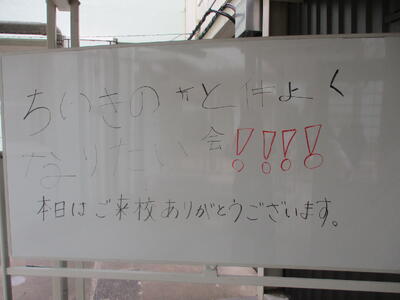 ちいきの方と仲よく
なりたい会!!!!
本日はご来校ありがとうございます。